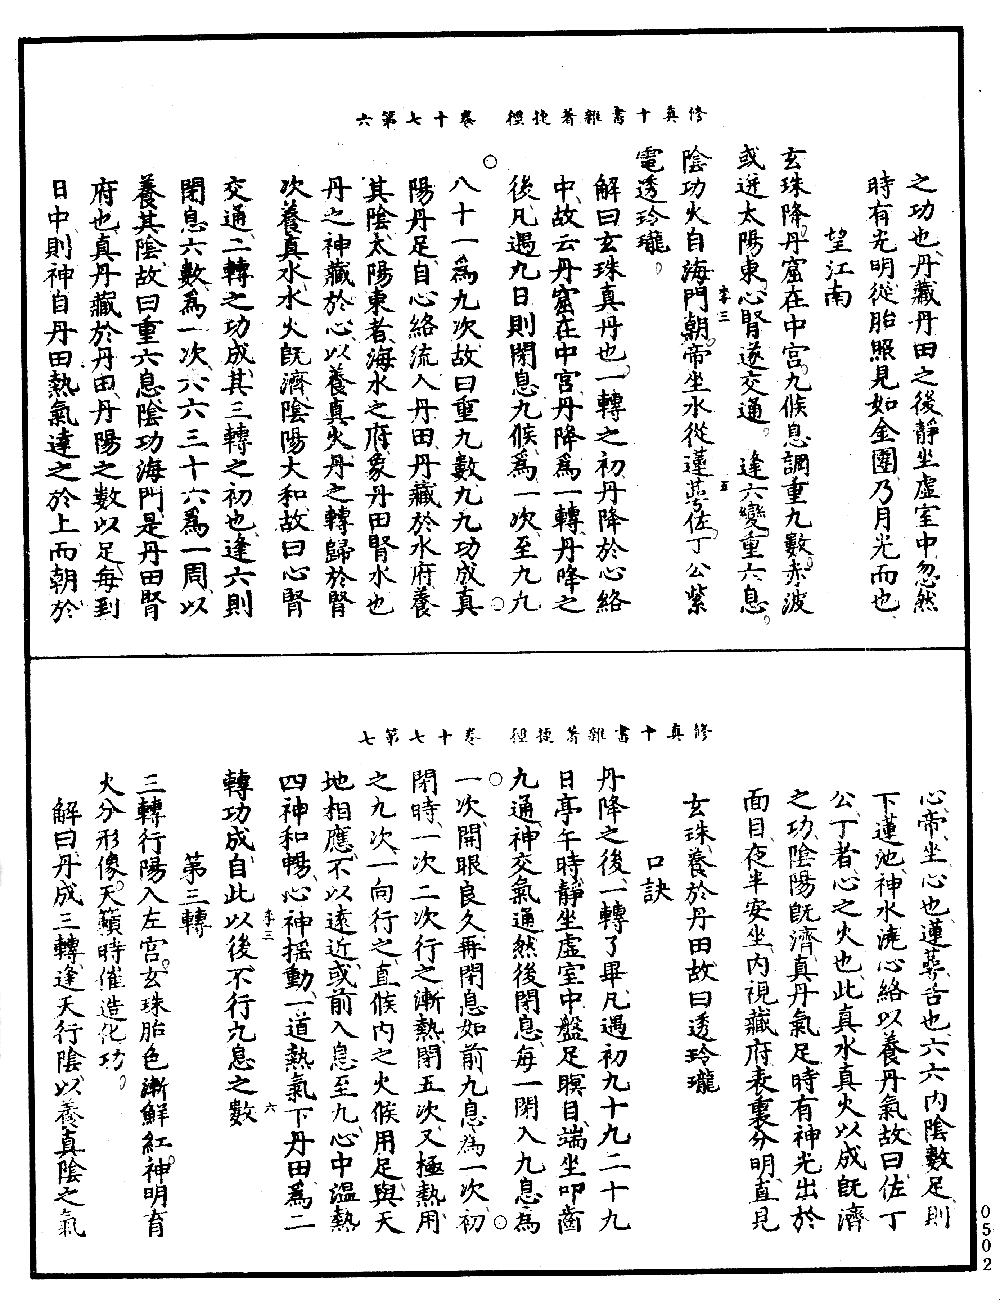 修真十書雜著捷徑　卷十七第六
之功也丹藏丹田之後靜坐虛室中忽然
時有光明從胎照見如金團乃月光而也
望江南
玄珠降丹窟在中宮九候息調重九數赤波
或迸太陽東心腎遂交通　逢六變重六息
李三
陰功火自海門朝帝坐水從蓮蕚佐丁公紫
五
電透玲瓏
解曰玄珠真丹也一轉之初丹降於心絡
中故云丹窟在中宮丹降為一轉丹降之
後凡遇九日則閉息九候為一次至九九
八十一為九次故曰重九數九九功成真
陽丹足自心絡流入丹田丹藏於水府養
其陰太陽東者海水之府象丹田腎水也
丹之神藏於心以養真火丹之轉歸於腎
次養真水水火旣濟陰陽大和故曰心腎
交通二轉之功成其三轉之初也逢六則
閉息六數為一次六六三十六為一周以
養其陰故曰重六息陰功海門是丹田腎
府也真丹藏於丹田丹陽之數以足每到
日中則神自丹田熱氣達之於上而朝於
修真十書雜著捷徑　卷十七第七
心帝坐心也蓮蕚舌也六六內陰數足則
下蓮池神水澆心絡以養丹氣故曰佐丁
公丁者心之火也此真水真火以成旣濟
之功陰陽旣濟真丹氣足時有神光出於
面目夜半安坐內視藏府表裏分明直見
玄珠養於丹田故曰透玲瓏
口訣
丹降之後一轉了畢凡遇初九十九二十九
日亭午時靜坐虛室中盤足瞑目端坐叩齒
九通神交氣通然後閉息每一閉入九息為
一次開眼良久再閉息如前九息為一次初
閉時一次二次行之漸熱閉五次又極熱用
之九次一向行之直候內之火候用足與天
地相應不以遠近或前入息至九心中溫熱
四神和暢心神揺動一道熱氣下丹田為二
李三
六
轉功成自此以後不行九息之數
第三轉
三轉行陽入左宮玄珠胎色漸鮮紅神明育
火分形像天籟時催造化功
解曰丹成三轉逢天行陰以養真陰之氣
0502